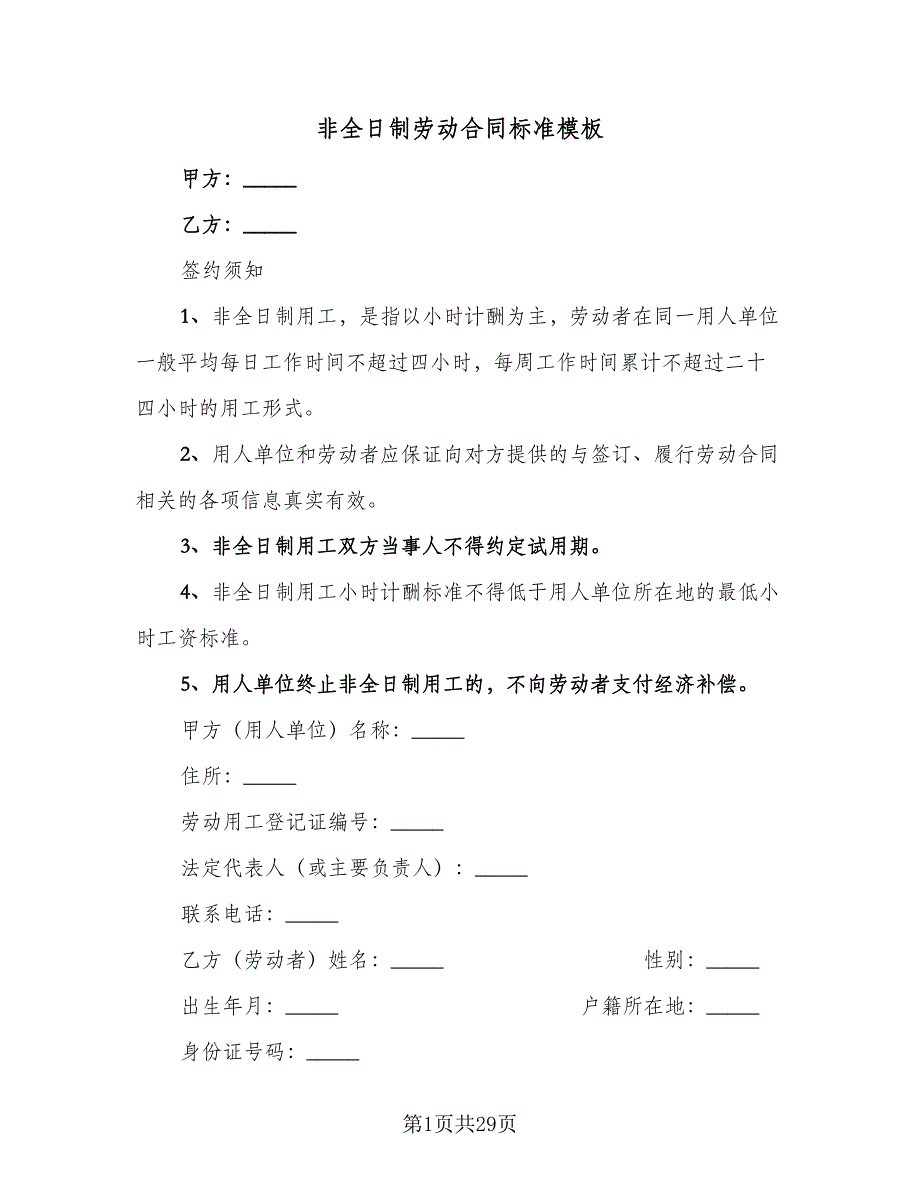 非全日制劳动合同标准模板
甲方：_____
乙方：_____
签约须知
1、非全日制用工，是指以小时计酬为主，劳动者在同一用人单位
一般平均每日工作时间不超过四小时，每周工作时间累计不超过二十
四小时的用工形式。
2、用人单位和劳动者应保证向对方提供的与签订、履行劳动合同
相关的各项信息真实有效。
3、非全日制用工双方当事人不得约定试用期。
4、非全日制用工小时计酬标准不得低于用人单位所在地的最低小
时工资标准。
5、用人单位终止非全日制用工的，不向劳动者支付经济补偿。
甲方（用人单位）名称：_____
住所：_____
劳动用工登记证编号：_____
法定代表人（或主要负责人）：_____
联系电话：_____
乙方（劳动者）姓名：_____ 性别：_____
出生年月：_____ 户籍所在地：_____
身份证号码：_____
第1页共29页